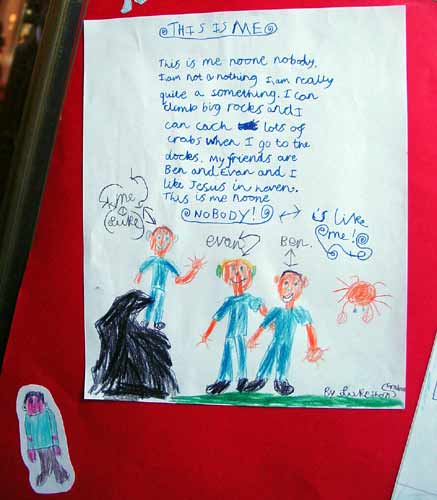 THIS IS ME
This is me noone nobody.
I am not a nothing I am really
quite a something. I can
climb big rocks and I
can cach lots of
crabs when I go to the
docks. My friends are
Ben and Evan and I
like Jesus in heven.
This is me noone
NOBODY! is like
me!
me
Luke
evan
Ben.
By